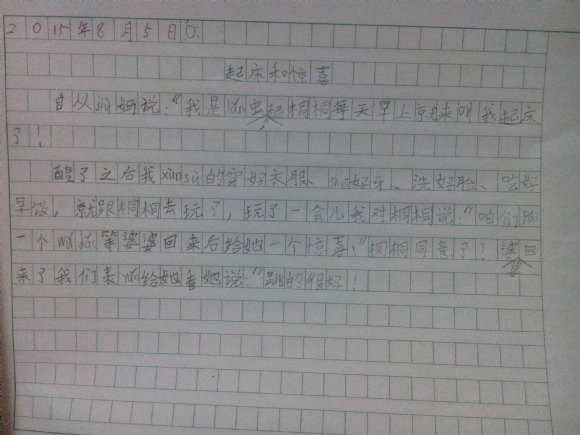 2015年8月5日
起床和惊喜
自从妈妈说:"我是lǎn虫起桐桐每天早上就来叫我起床
了!
醒了之后我xùnsù的穿好衣服、好牙、洗好脸、吃好
早饭,就跟桐桐去玩了,玩了一会儿我对桐桐说:"咱们
一个wǔ等婆婆回来后给她一个惊喜、"桐桐同意了!婆回
来了我们表演给她看她说:"跳的很好!